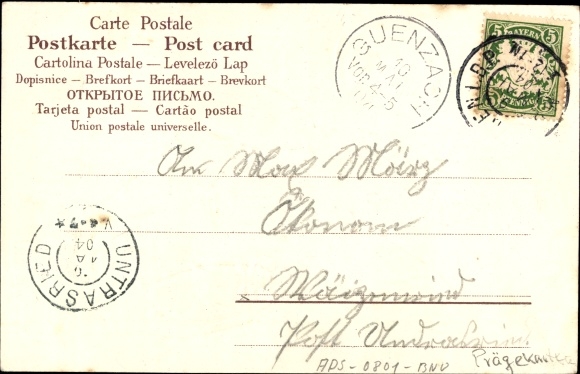 Carte Postale
Postkarte — Post card
Cartolina Postale — Levelező Lap
Dopisnice — Brefkort — Briefkaart — Brevkort
ОТКРЫТОЕ ПИСЬМО.
Tarjeta postal — Cartão postal
Union postale universelle.
GUENZACH
10
MAI
VOR 4-5
BAYERN
5 5
PFENNIG
An Max März
Ökonom
UNTRASRIED
Post
APS-0801-BNU
Prägekarte